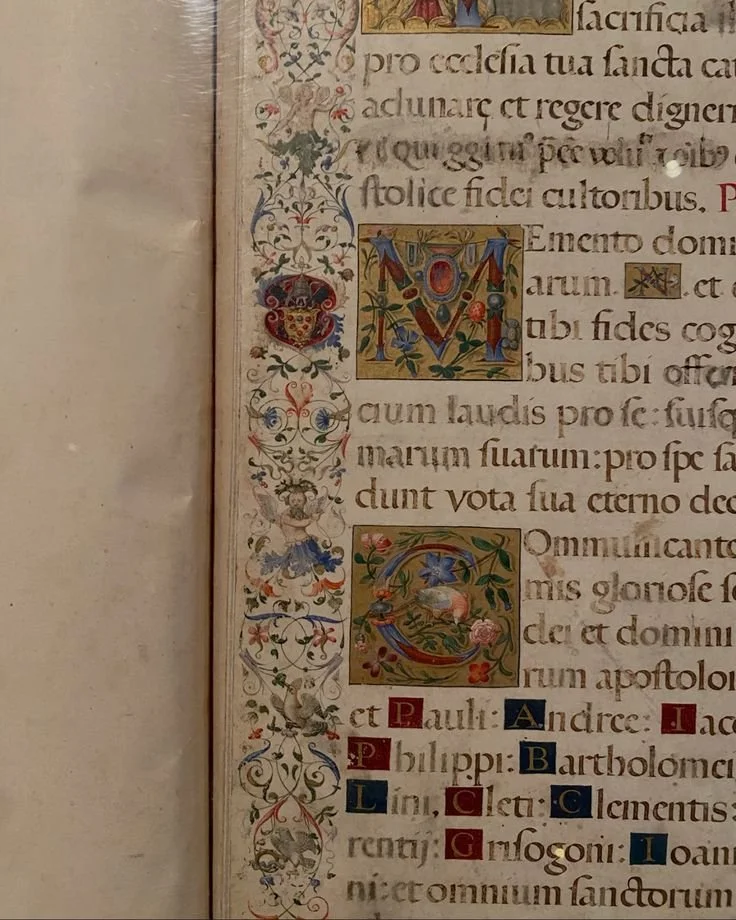 sacrificia il
pro ecclesia tua sancta cat
adunare et regere digner
stolice fidei cultoribus. P
MEmento domi
arum. N. et o
tibi fides cog
bus tibi offer
cium laudis pro se: suisq
marum suarum: pro spe sa
dunt vota sua eterno deo
COmmunicante
mis gloriose se
dei et domini
rum apostolor
et Pauli: Andree: Iaco
Philippi: Bartholomei
Lini, Cleti: Clementis:
rentij: Grisogoni: Ioann
ni: et omnium sanctorum